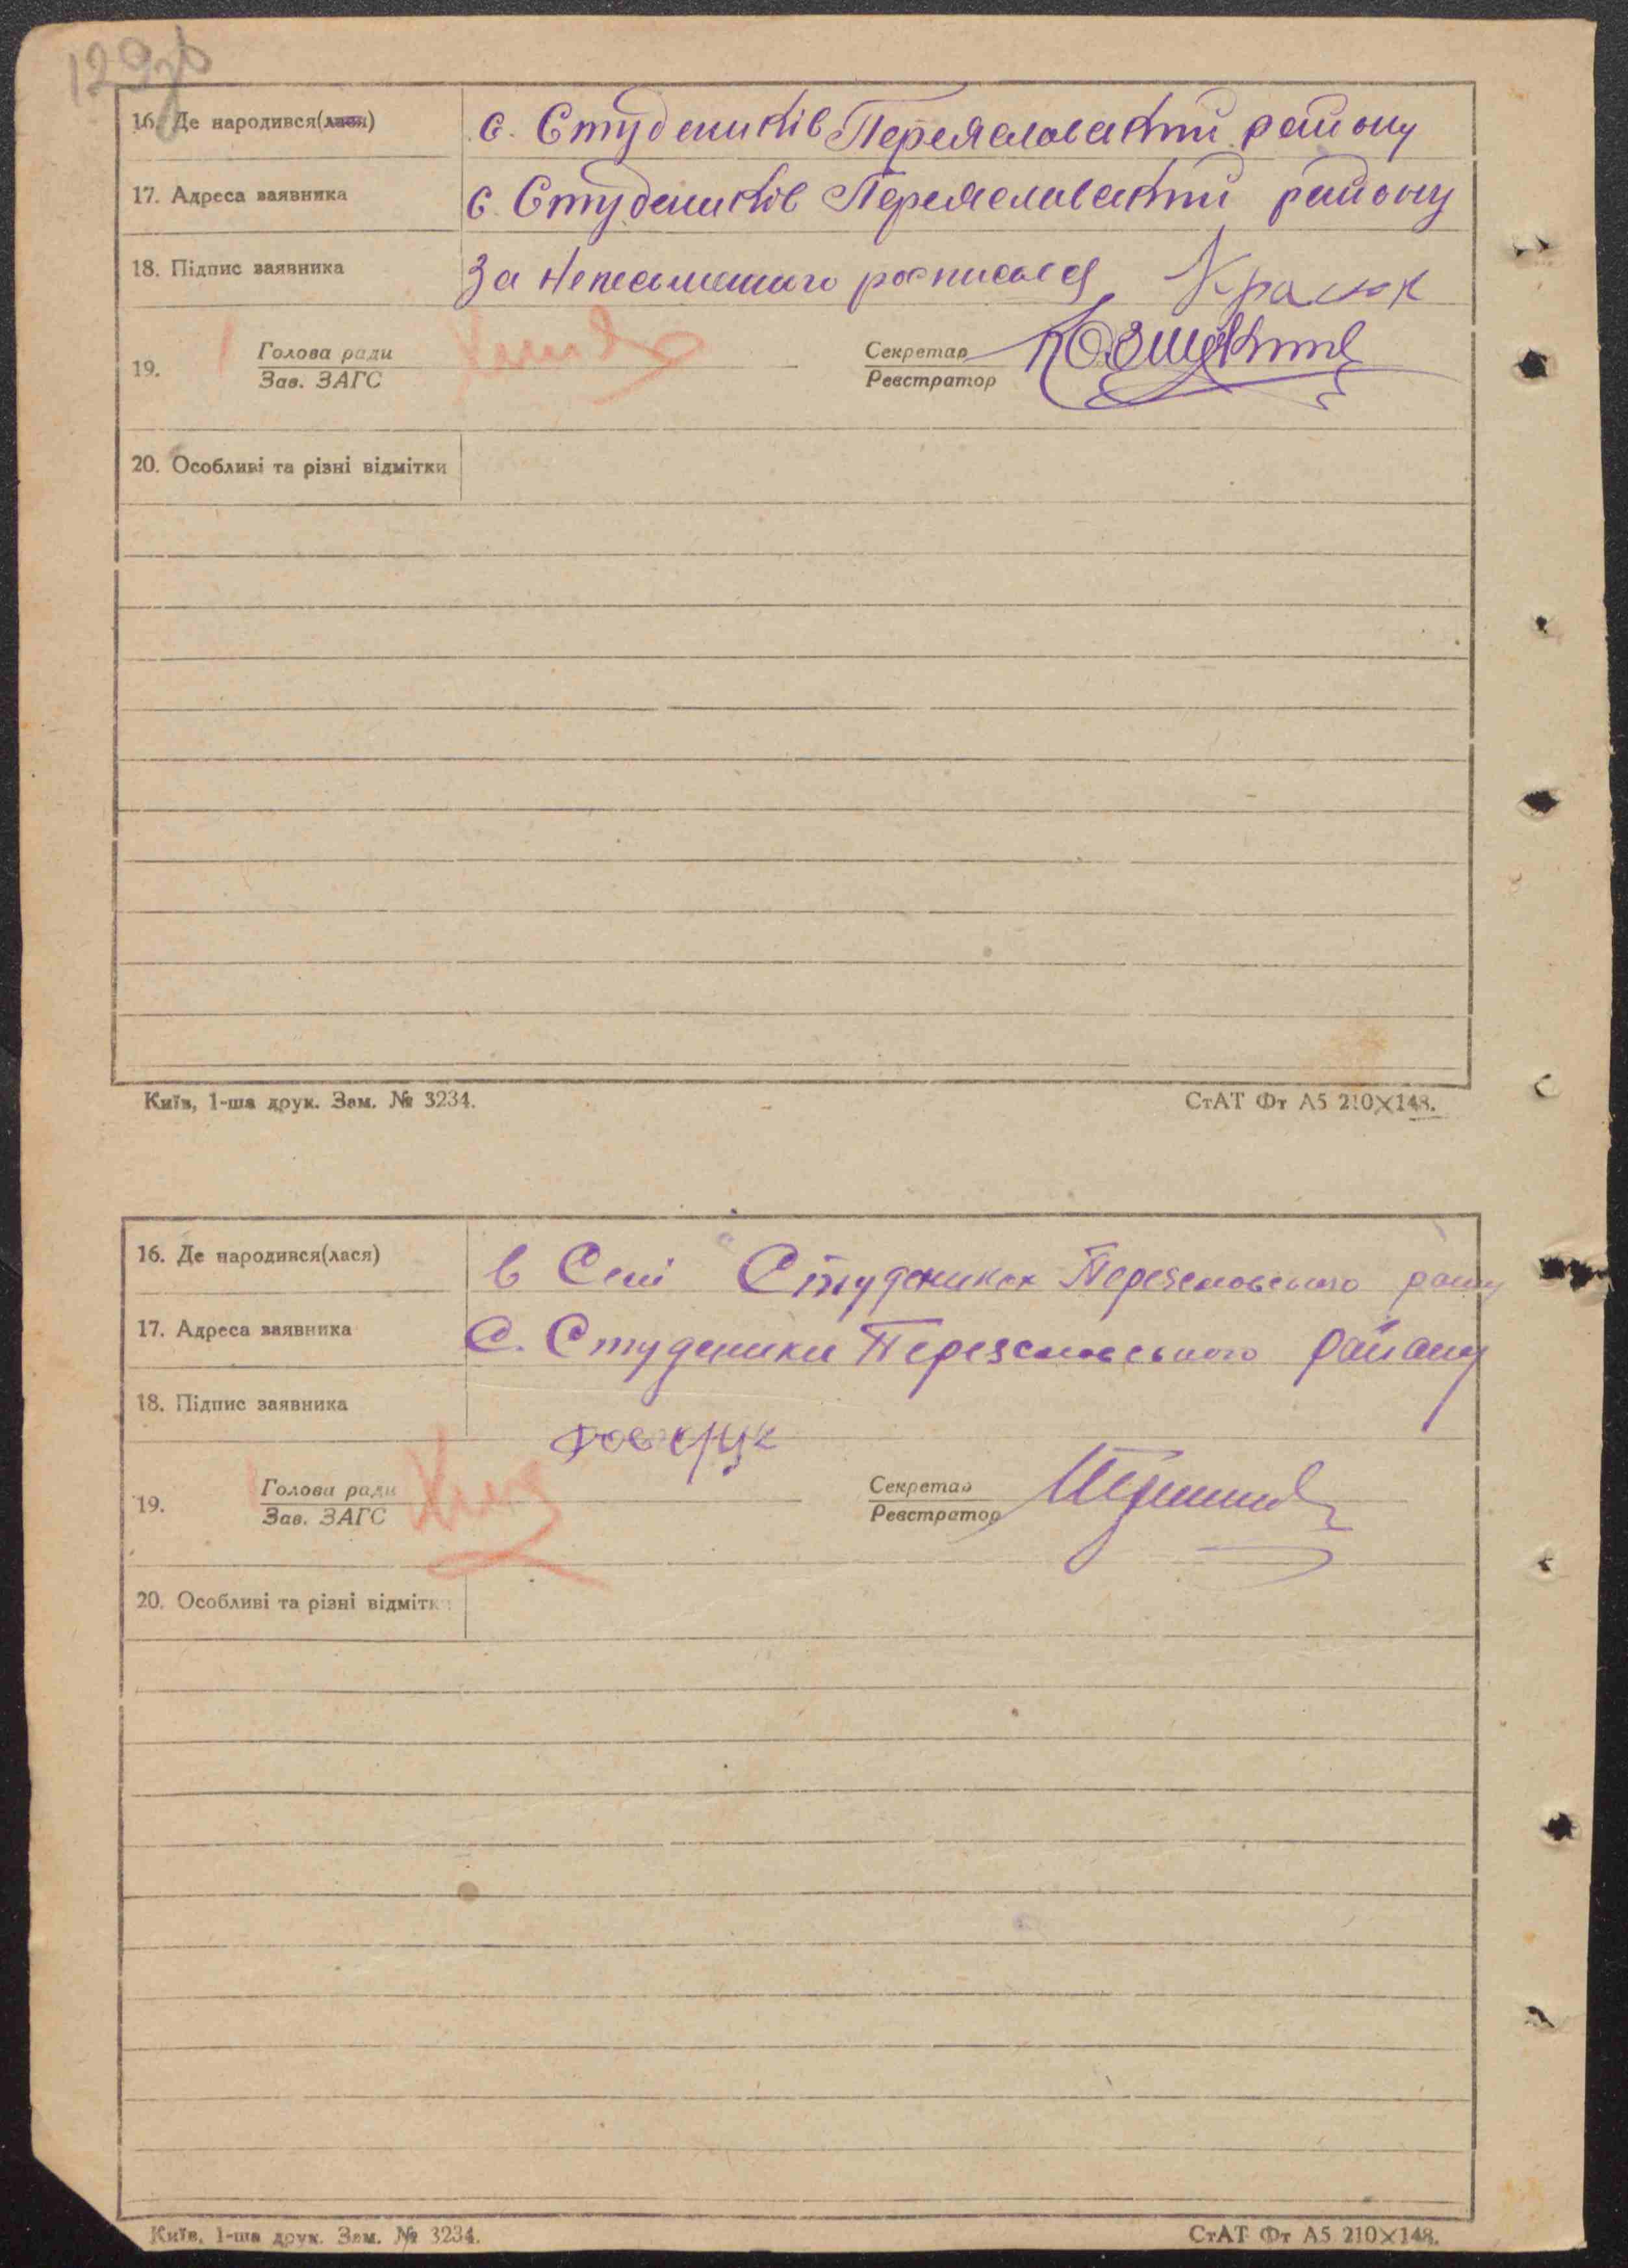 129зв
16. Де народився(лася) с. Студеників Переяславський району
17. Адреса заявника с. Студеників Переяславський району
18. Підпис заявника За неписьменного росписался
19. Голова ради Секретар
Зав. ЗАГС Реєстратор
20. Особливі та різні відмітки
Київ, 1-ша друк. Зам. № 3234. СтАТ Фт А5 210×148.
16. Де народився(лася) в Селі Студениках Переяславського райну
17. Адреса заявника С. Студеники Переяславського району
18. Підпис заявника
19. Голова ради Секретар
Зав. ЗАГС Реєстратор
20. Особливі та різні відмітки
Київ, 1-ша друк. Зам. № 3234. СтАТ Фт А5 210×148.